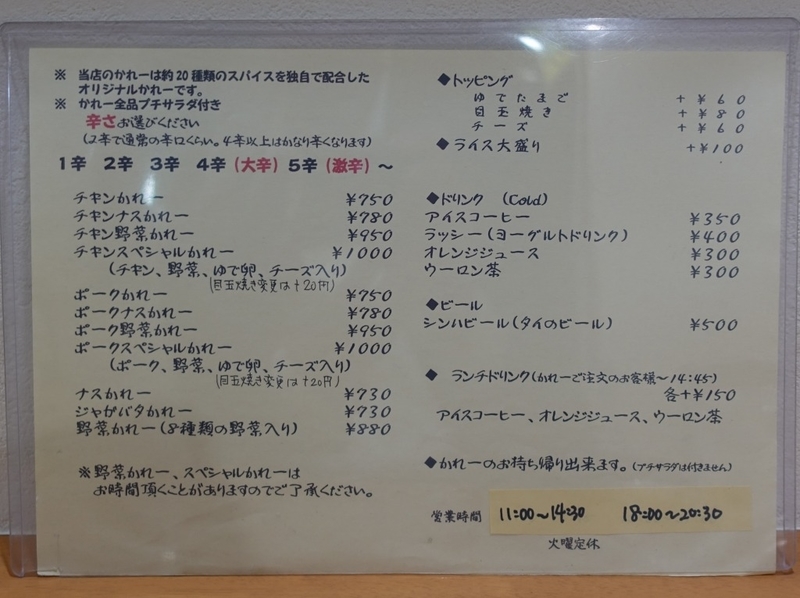 ※ 当店のかれーは約20種類のスパイスを独自で配合した
オリジナルかれーです。
※ かれー全品プチサラダ付き
辛さお選びください
(2辛で通常の辛口くらい。4辛以上はかなり辛くなります)
1辛 2辛 3辛 4辛(大辛) 5辛(激辛)～
チキンかれー ¥750
チキンナスかれー ¥780
チキン野菜かれー ¥950
チキンスペシャルかれー ¥1000
(チキン、野菜、ゆで卵、チーズ入り)
(目玉焼き変更は+20円)
ポークかれー ¥750
ポークナスかれー ¥780
ポーク野菜かれー ¥950
ポークスペシャルかれー ¥1000
(ポーク、野菜、ゆで卵、チーズ入り)
(目玉焼き変更は+20円)
ナスかれー ¥730
ジャがバタかれー ¥730
野菜かれー(8種類の野菜入り) ¥880
※野菜かれー、スペシャルかれーは
お時間頂くことがありますのでご了承ください。
◆トッピング
ゆでたまご +¥60
目玉焼き +¥80
チーズ +¥60
◆ライス大盛り +¥100
◆ドリンク (Cold)
アイスコーヒー ¥350
ラッシー(ヨーグルトドリンク) ¥400
オレンジジュース ¥300
ウーロン茶 ¥300
◆ビール
シンハビール(タイのビール) ¥500
◆ ランチドリンク(かれーご注文のお客様～14:45)
各+¥150
アイスコーヒー、オレンジジュース、ウーロン茶
◆かれーのお持ち帰り出来ます。(プチサラダは付きません)
営業時間 11:00～14:30 18:00～20:30
火曜定休